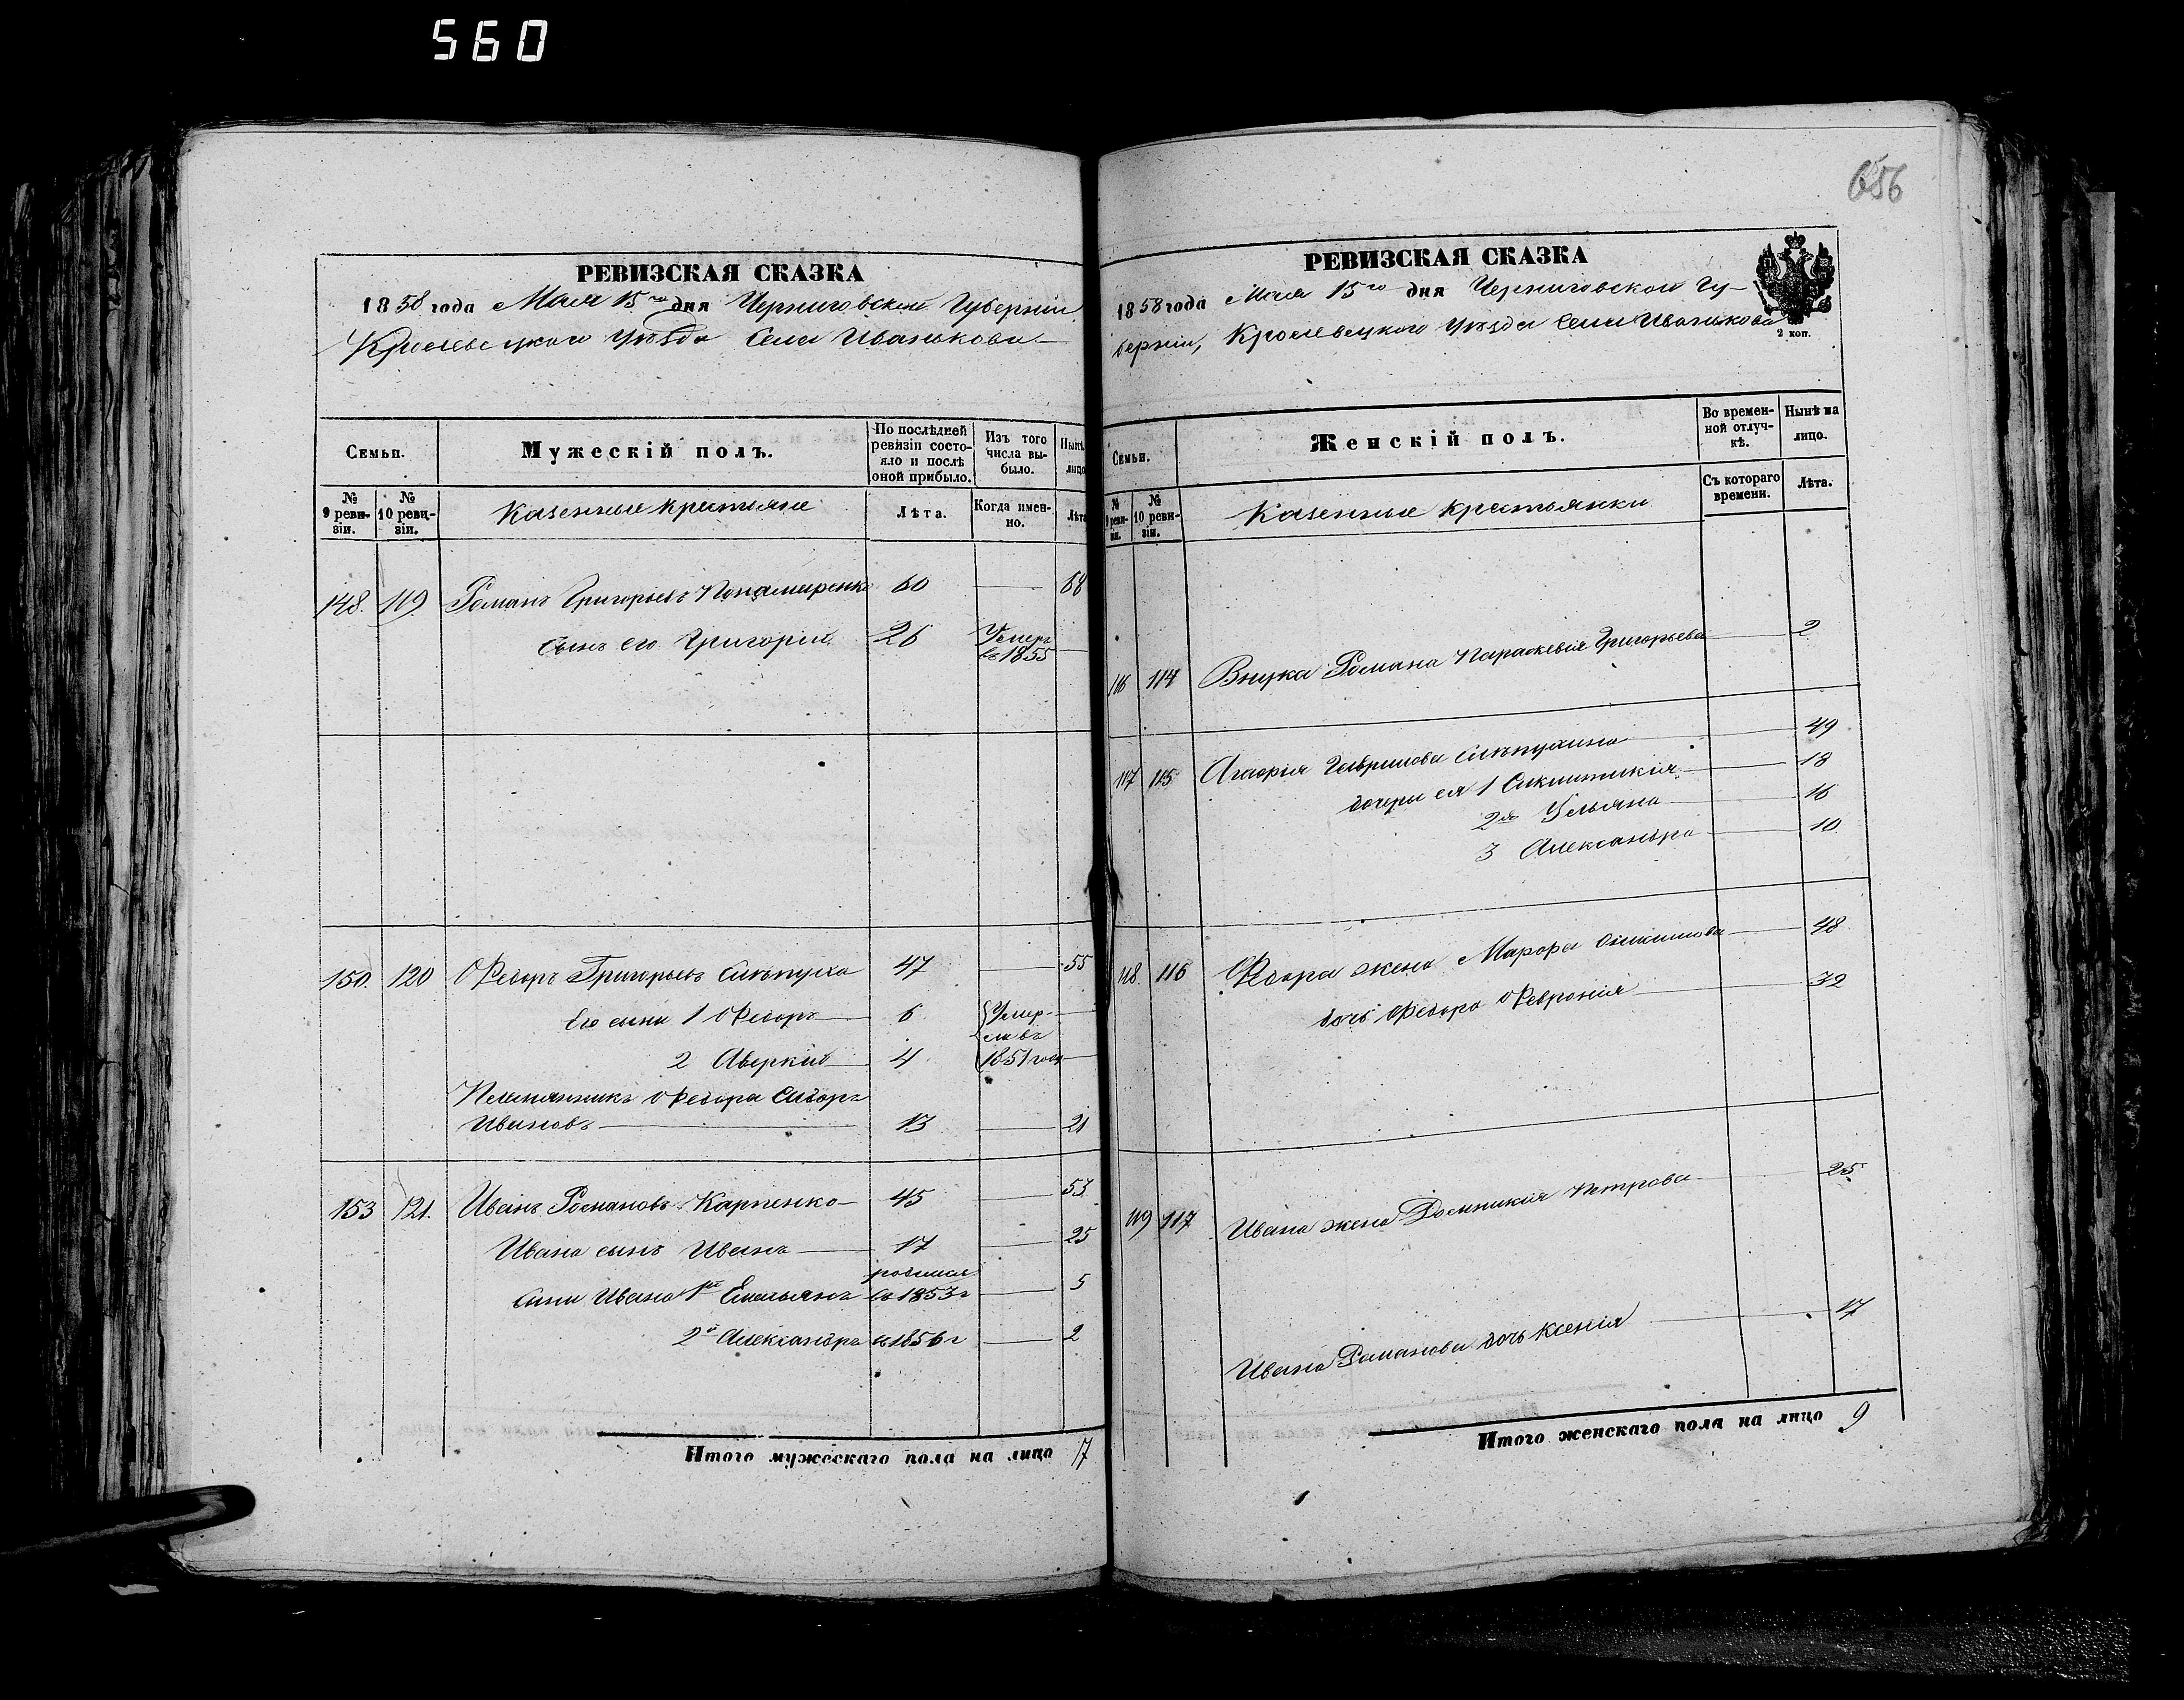 560
656
РЕВИЗСКАЯ СКАЗКА
1858 года Мая 15го дня Черниговской Губернии
Кролевецкаго уѣзда Села Иванькова
Семьи.
Мужескій полъ.
По послѣдней ревизіи состояло и послѣ оной прибыло.
Изъ того числа выбыло.
Нынѣ лицо
№ 9 ревизіи.
№ 10 ревизіи.
Казенные крестьяне
Лѣта.
Когда именно.
Лѣта
148. 119. Романъ Григорьевъ Понамаренко 60 — 68
сынъ его Григорій 26 Умеръ въ 1855 —
150. 120 Ѳедоръ Григорьевъ Слѣпуха 47 — 55
Его сыны 1 Ѳедоръ — 6 Умер- —
ли въ
2 Аверкій — 4 1851 году —
Племянникъ Ѳедора Сидоръ
Ивановъ — 13 — 21
153 121. Иванъ Романовъ Карпенко — 45 — 53
Ивана сынъ Иванъ — 17 — 25
родился
сыны Ивана 1й Емельянъ въ 1853 г — 5
2й Александръ въ 1856 г — 2
Итого мужескаго пола на лицо 7
РЕВИЗСКАЯ СКАЗКА
1858 года Мая 15го дня Черниговской Гу-
берніи, Кролевецкого уѣзда Села Иванькова
2 коп.
Семьи.
Женскій полъ.
Во временной отлучкѣ.
Нынѣ на лицо.
№ 9 ревизіи.
№ 10 ревизіи.
Казенные крестьянки
Съ котораго времени.
Лѣта.
116 114 Внука Романа Параскевія Григорьева — 2
117 115 Агафія Гаврилова Слѣпухина — 49
дочери ея 1 — 18
2я Ульяна — 16
3 Александра — 10
118. 116 Ѳедора жена Марфа — 48
дочь Ѳедора Ѳевронія — 32
119 117 Ивана жена Домникія Петрова — 25
Ивана Романова дочь Ксенія — 17
Итого женскаго пола на лицо 9